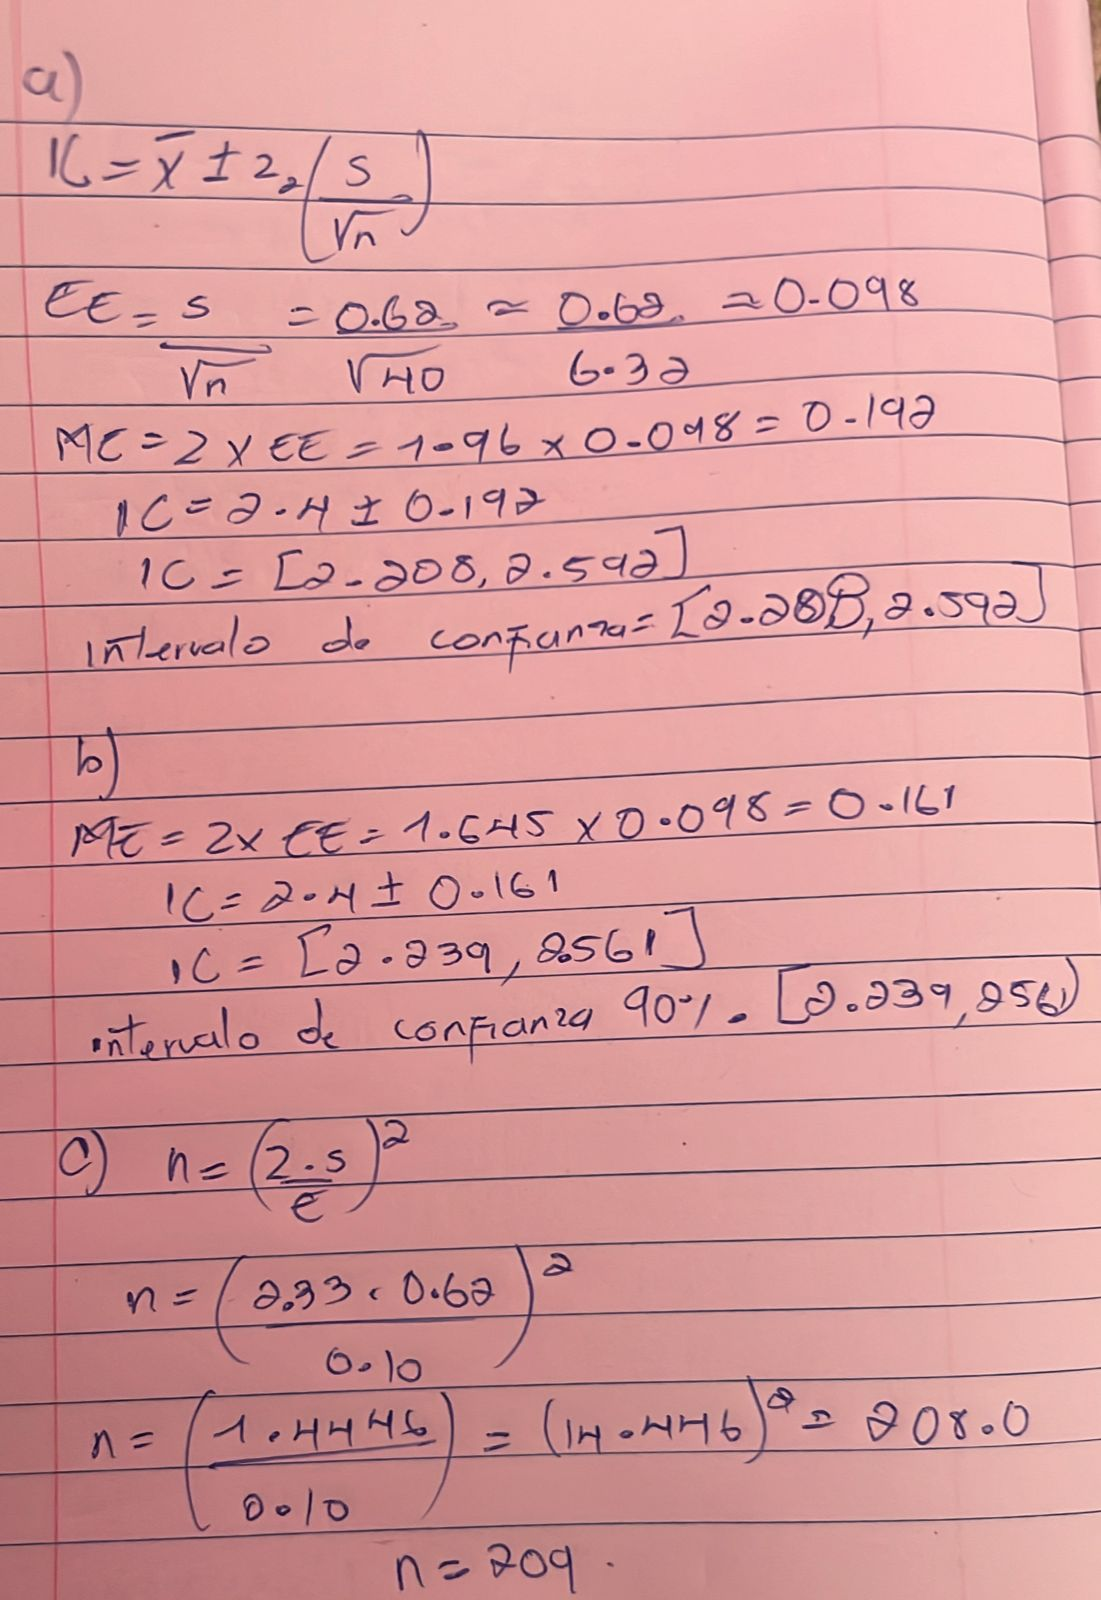 a)
IC = x̄ ± z₂ (s/√n)
EE = s/√n = 0.62/√40 ≈ 0.62/6.32 ≈ 0.098
ME = z x EE = 1.96 x 0.098 = 0.192
IC = 2.4 ± 0.192
IC = [2.208, 2.592]
intervalo de confianza = [2.208, 2.592]
b)
ME = z x EE = 1.645 x 0.098 = 0.161
IC = 2.4 ± 0.161
IC = [2.239, 2.561]
intervalo de confianza 90%. [2.239, 256)
c) n = (z · s/e)²
n = (2.33 · 0.62/0.10)²
n = (1.4446/0.10) = (14.446)² = 208.0
n = 209.